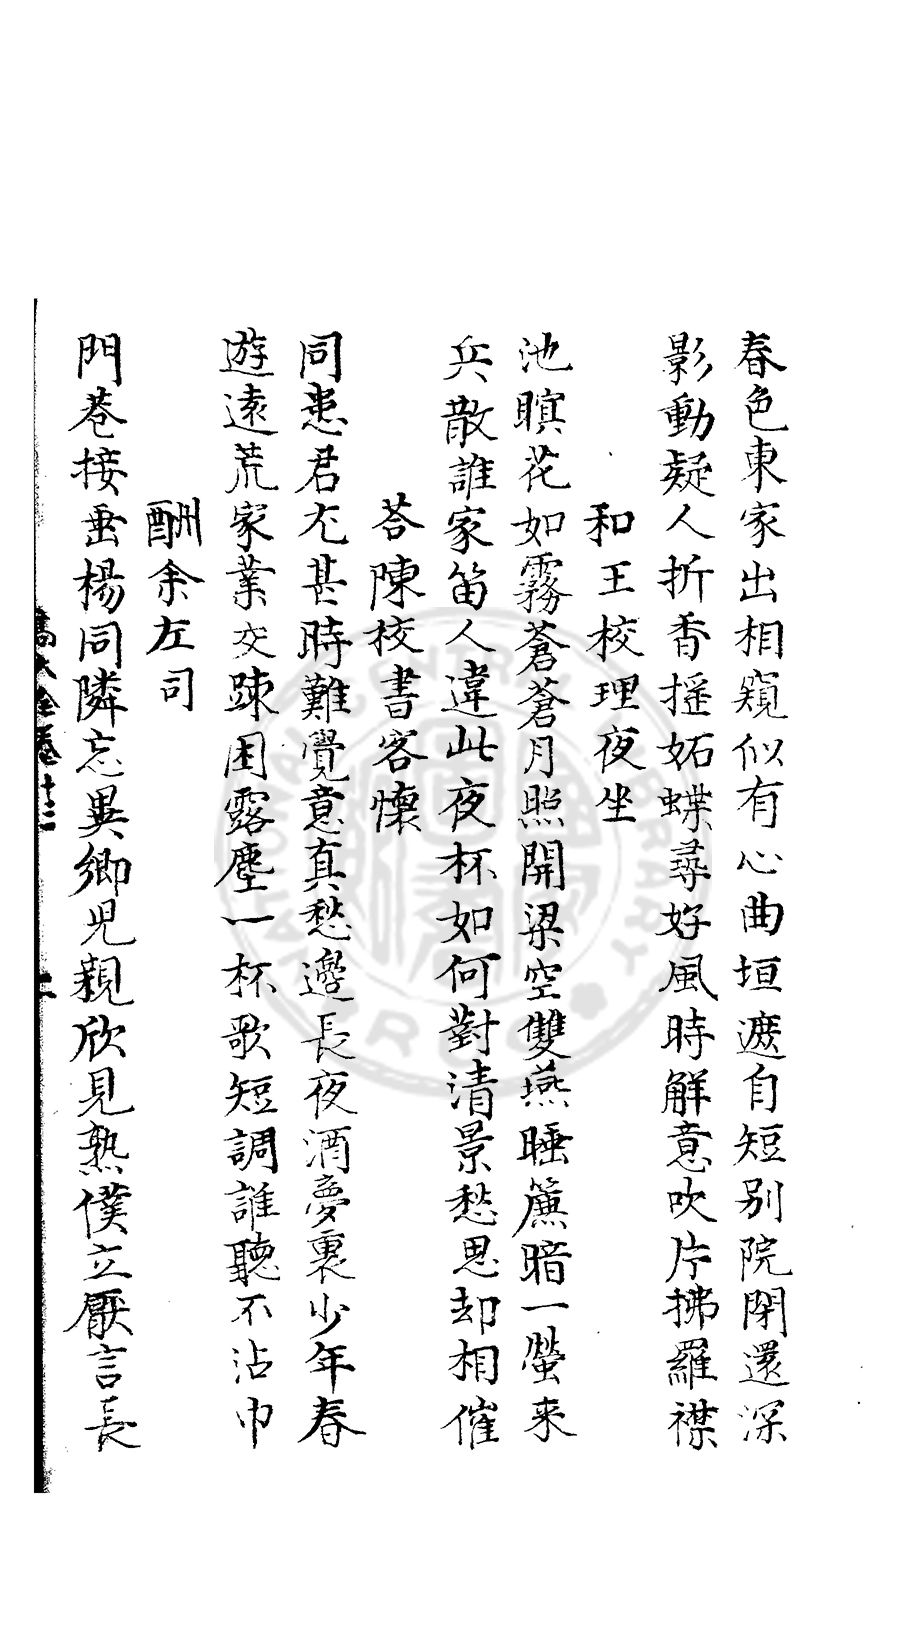 春色東家出相窺似有心曲垣遮自短别院閉還深
影動疑人折香摇妬蝶尋好風時解意吹片拂羅襟
和王校理夜坐
池暝花如霧蒼蒼月照開梁空雙燕睡簾暗一螢来
兵散誰家笛人違此夜杯如何對清景愁思却相催
荅陳校書客懷
同患君尤甚時難覺意真愁邊長夜酒夢裏少年春
遊遠荒家業交踈困露塵一杯歌短調誰聽不沾巾
酬余左司
門巷接垂楊同隣忘異鄉児親欣見熟僕立厭言長